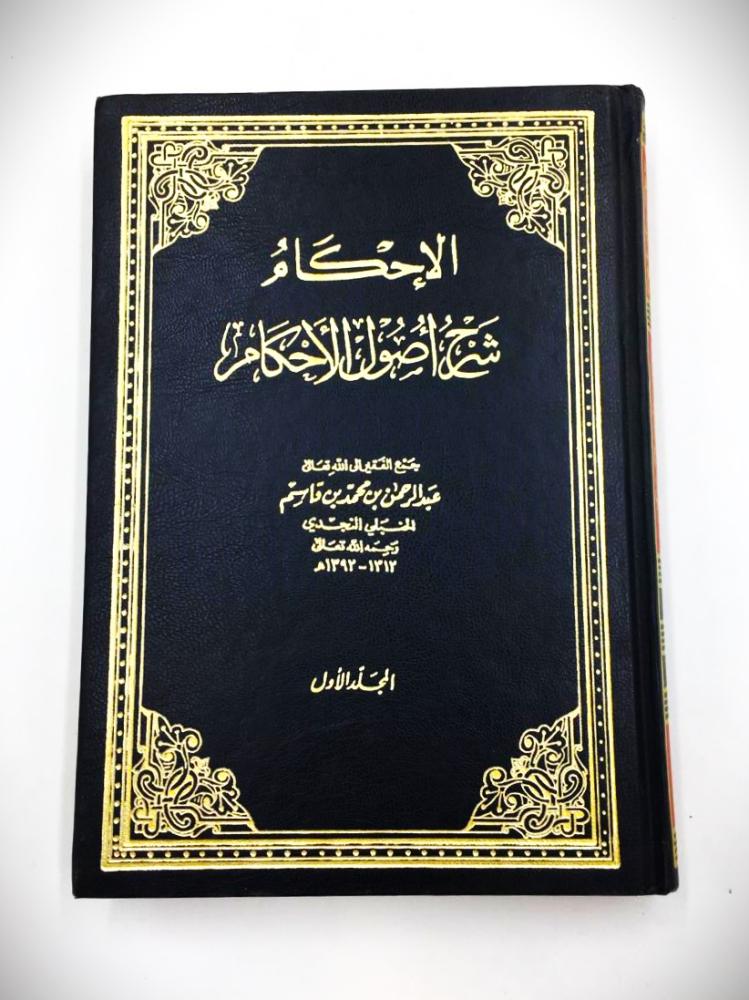 الإحكام
شرح أصول الأحكام
جمع الفقير إلى الله تعالى
عبد الرحمن بن محمد بن قاسم
الحنبلي النجدي
رحمه الله تعالى
١٣١٢ - ١٣٩٢ هـ
المجلد الأول